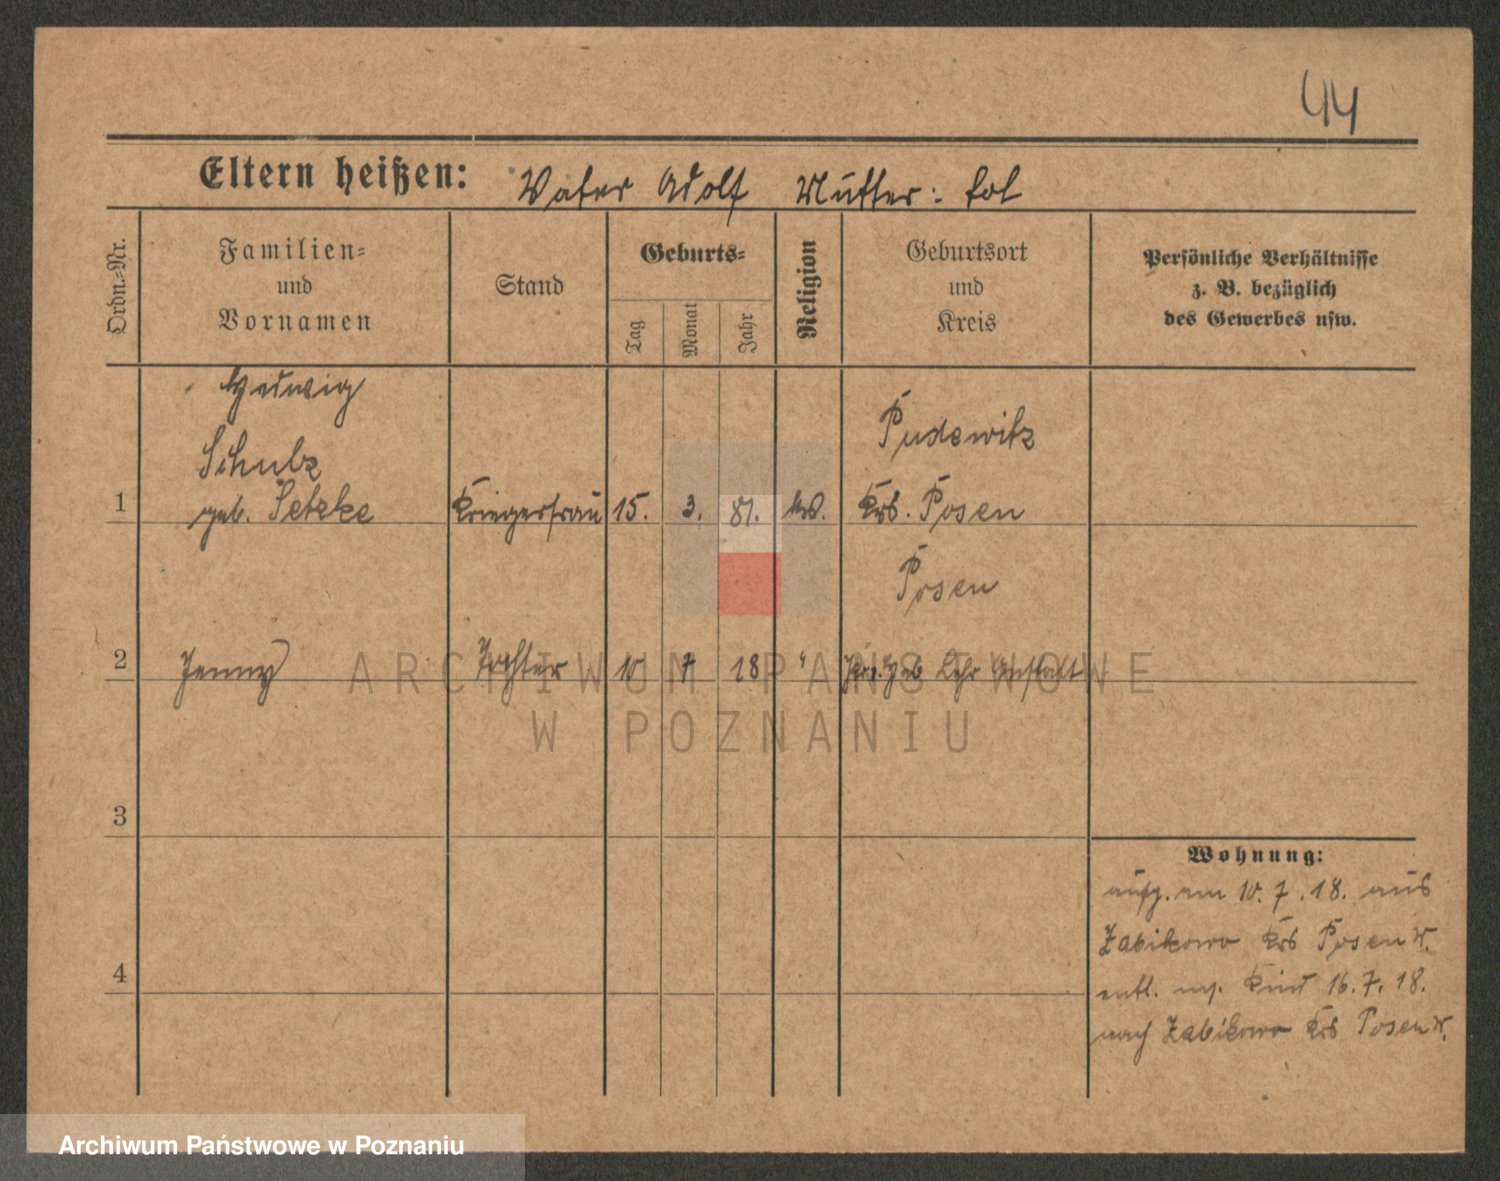 44
Eltern heißen: Vater Adolf Mutter: tot
Ordn.-Nr.
Familien-
und
Vornamen
Stand
Geburts-
Tag
Monat
Jahr
Religion
Geburtsort
und
Kreis
Persönliche Verhältnisse
z. B. bezüglich
des Gewerbes usw.
Hedwig
Schulz
1 geb. Setzke Kriegerfrau 15. 3. 81.
Pudewitz
Krs. Posen
Posen
2 Jenny Tochter 10 7 18 " Heb Lehr Anstalt
3
4
Wohnung:
aufg. am 10. 7. 18. aus
Zabikowo Krs Posen W.
entl. m. Kind 16. 7. 18.
nach Zabikowo Krs Posen W.
ARCHIWUM PAŃSTWOWE
W POZNANIU
Archiwum Państwowe w Poznaniu